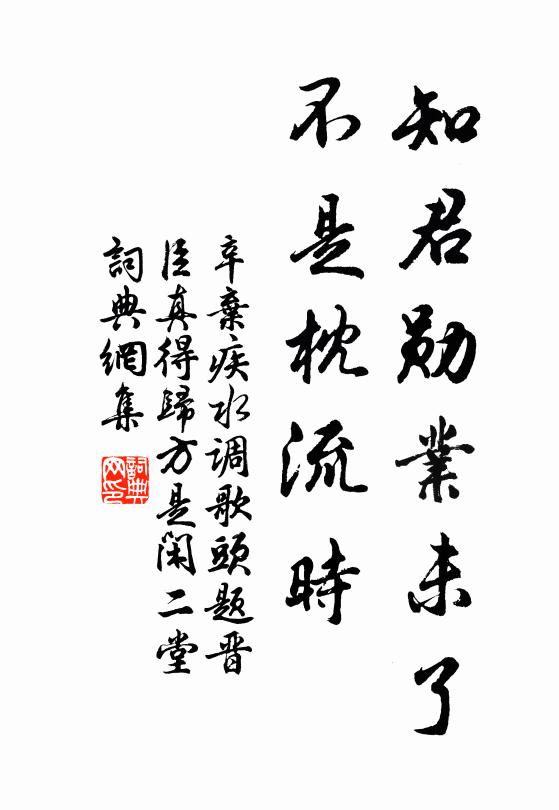 知君勋業未了
不是枕流時
辛棄疾水调歌頭题晋
臣真得歸方是闲二堂
詞典網集
詞典
网印